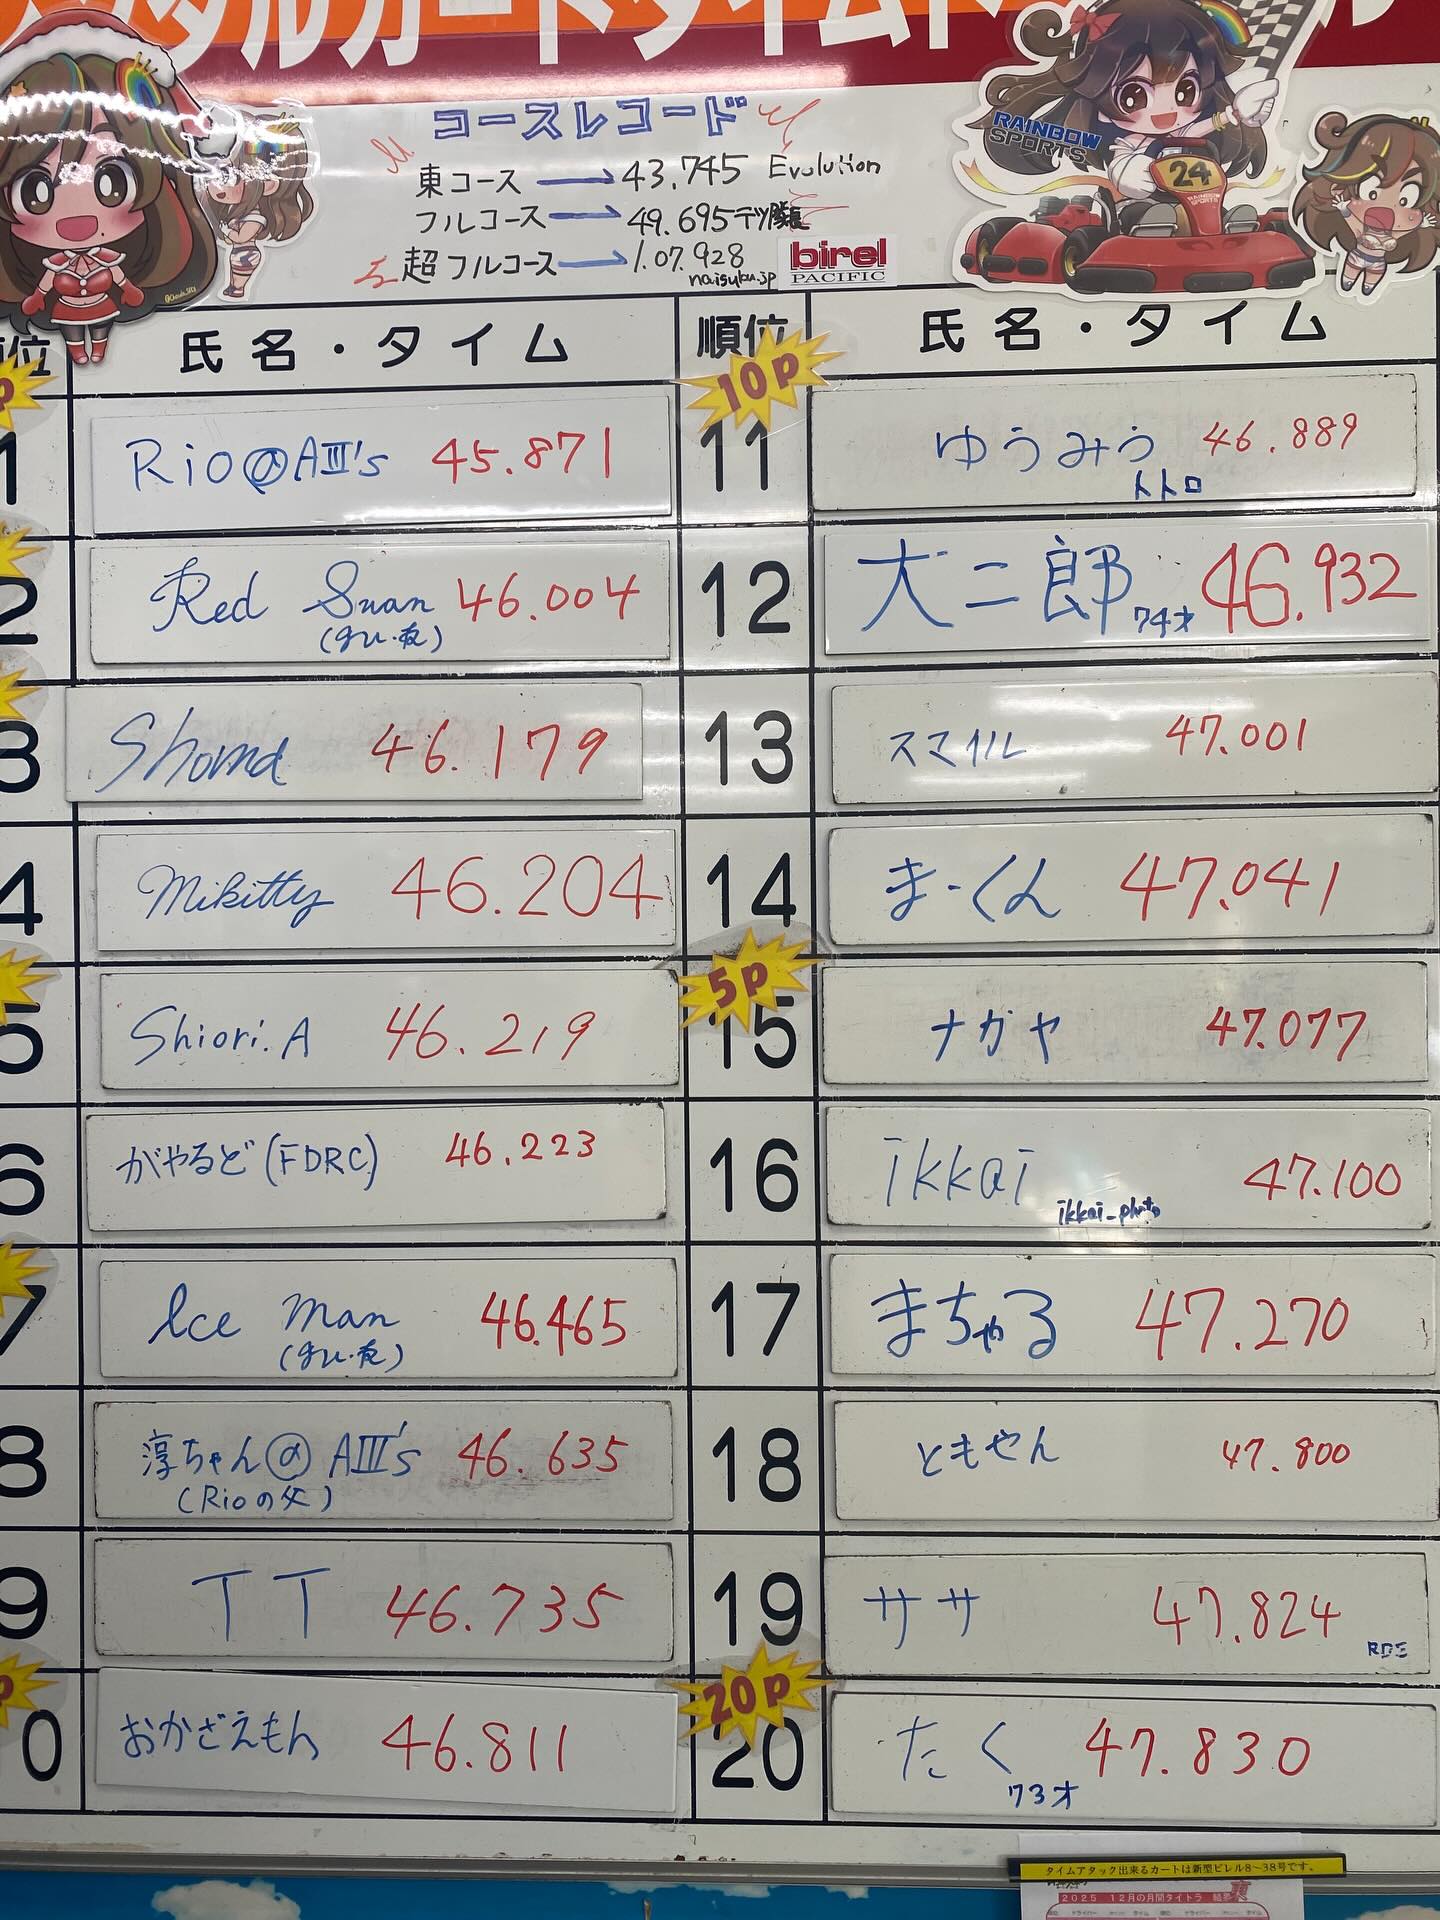 タルカートタイムト
コースレコード
東コース → 43.745 Evolution
フルコース → 49.695 テツ隊長
超フルコース → 1.07.928
naisuku.jp
birel
PACIFIC
RAINBOW
SPORTS
24
RAINBOW
SPORTS
順位 氏名・タイム 順位 氏名・タイム
1 Rio@AⅢ's 45.871
2 Red Suan 46.004
3 Shoma 46.179
4 Mikitty 46.204
5 Shiori.A 46.219
6 がやるど(FDRC) 46.223
7 Ice man 46.465
8 淳ちゃん@AⅢ's 46.635
(Rioの父)
9 TT 46.735
0 おかざえもん 46.811
10P
11 ゆうみう 46.889
トトロ
12 大二郎 74才 46.932
13 スマイル 47.001
14 まーくん 47.041
5P
15 ナガヤ 47.077
16 ikkai 47.100
ikkai_photo
17 まちゃる 47.270
18 ともやん 47.800
19 ササ 47.824
RDE
20P
20 たく 47.830
73才
タイムアタック出来るカートは新型ビレル8〜38号です。
2025 12月の月間タイトラ